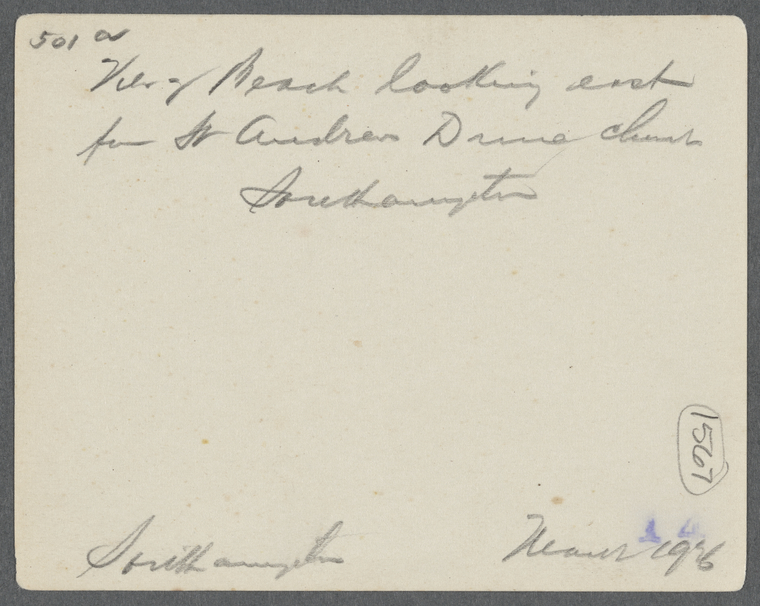 501 a
View of Beach looking east
from St Andrews Dune church
Southampton
1567
Southampton